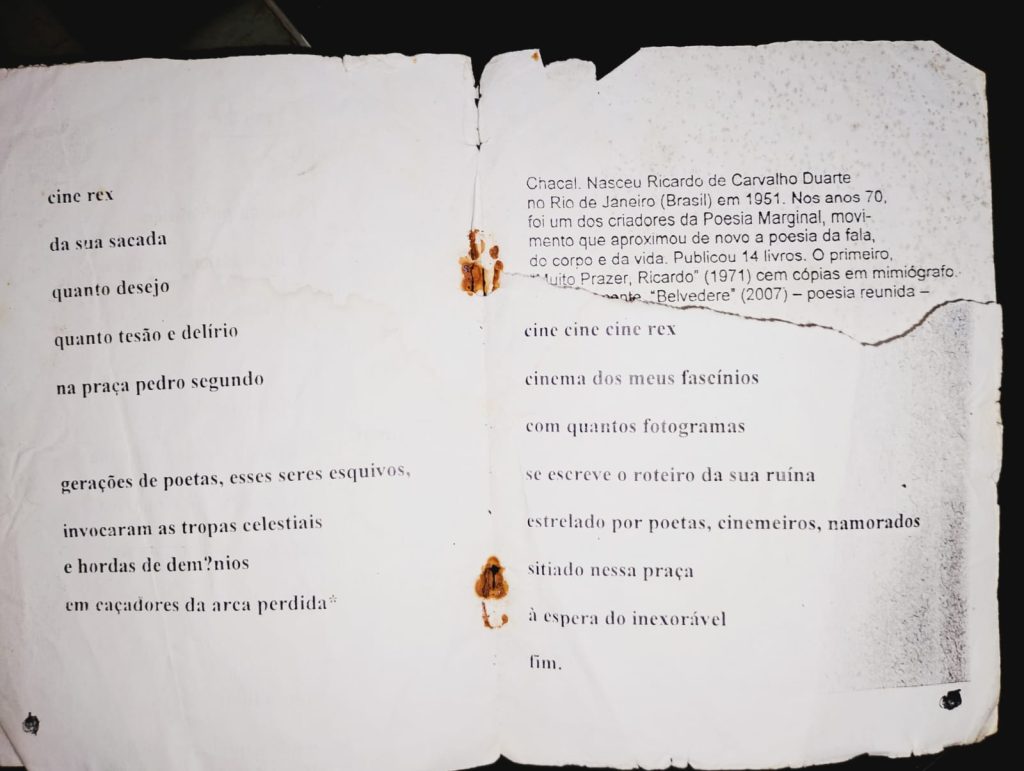 cine rex
da sua sacada
quanto desejo
quanto tesão e delírio
na praça pedro segundo
gerações de poetas, esses seres esquivos,
invocaram as tropas celestiais
e hordas de dem?nios
em caçadores da arca perdida*
Chacal. Nasceu Ricardo de Carvalho Duarte
no Rio de Janeiro (Brasil) em 1951. Nos anos 70,
foi um dos criadores da Poesia Marginal, movi-
mento que aproximou de novo a poesia da fala,
do corpo e da vida. Publicou 14 livros. O primeiro,
"Muito Prazer, Ricardo" (1971) cem cópias em mimiógrafo.
"Belvedere" (2007) – poesia reunida –
cine cine cine rex
cinema dos meus fascínios
com quantos fotogramas
se escreve o roteiro da sua ruína
estrelado por poetas, cinemeiros, namorados
sitiado nessa praça
à espera do inexorável
fim.